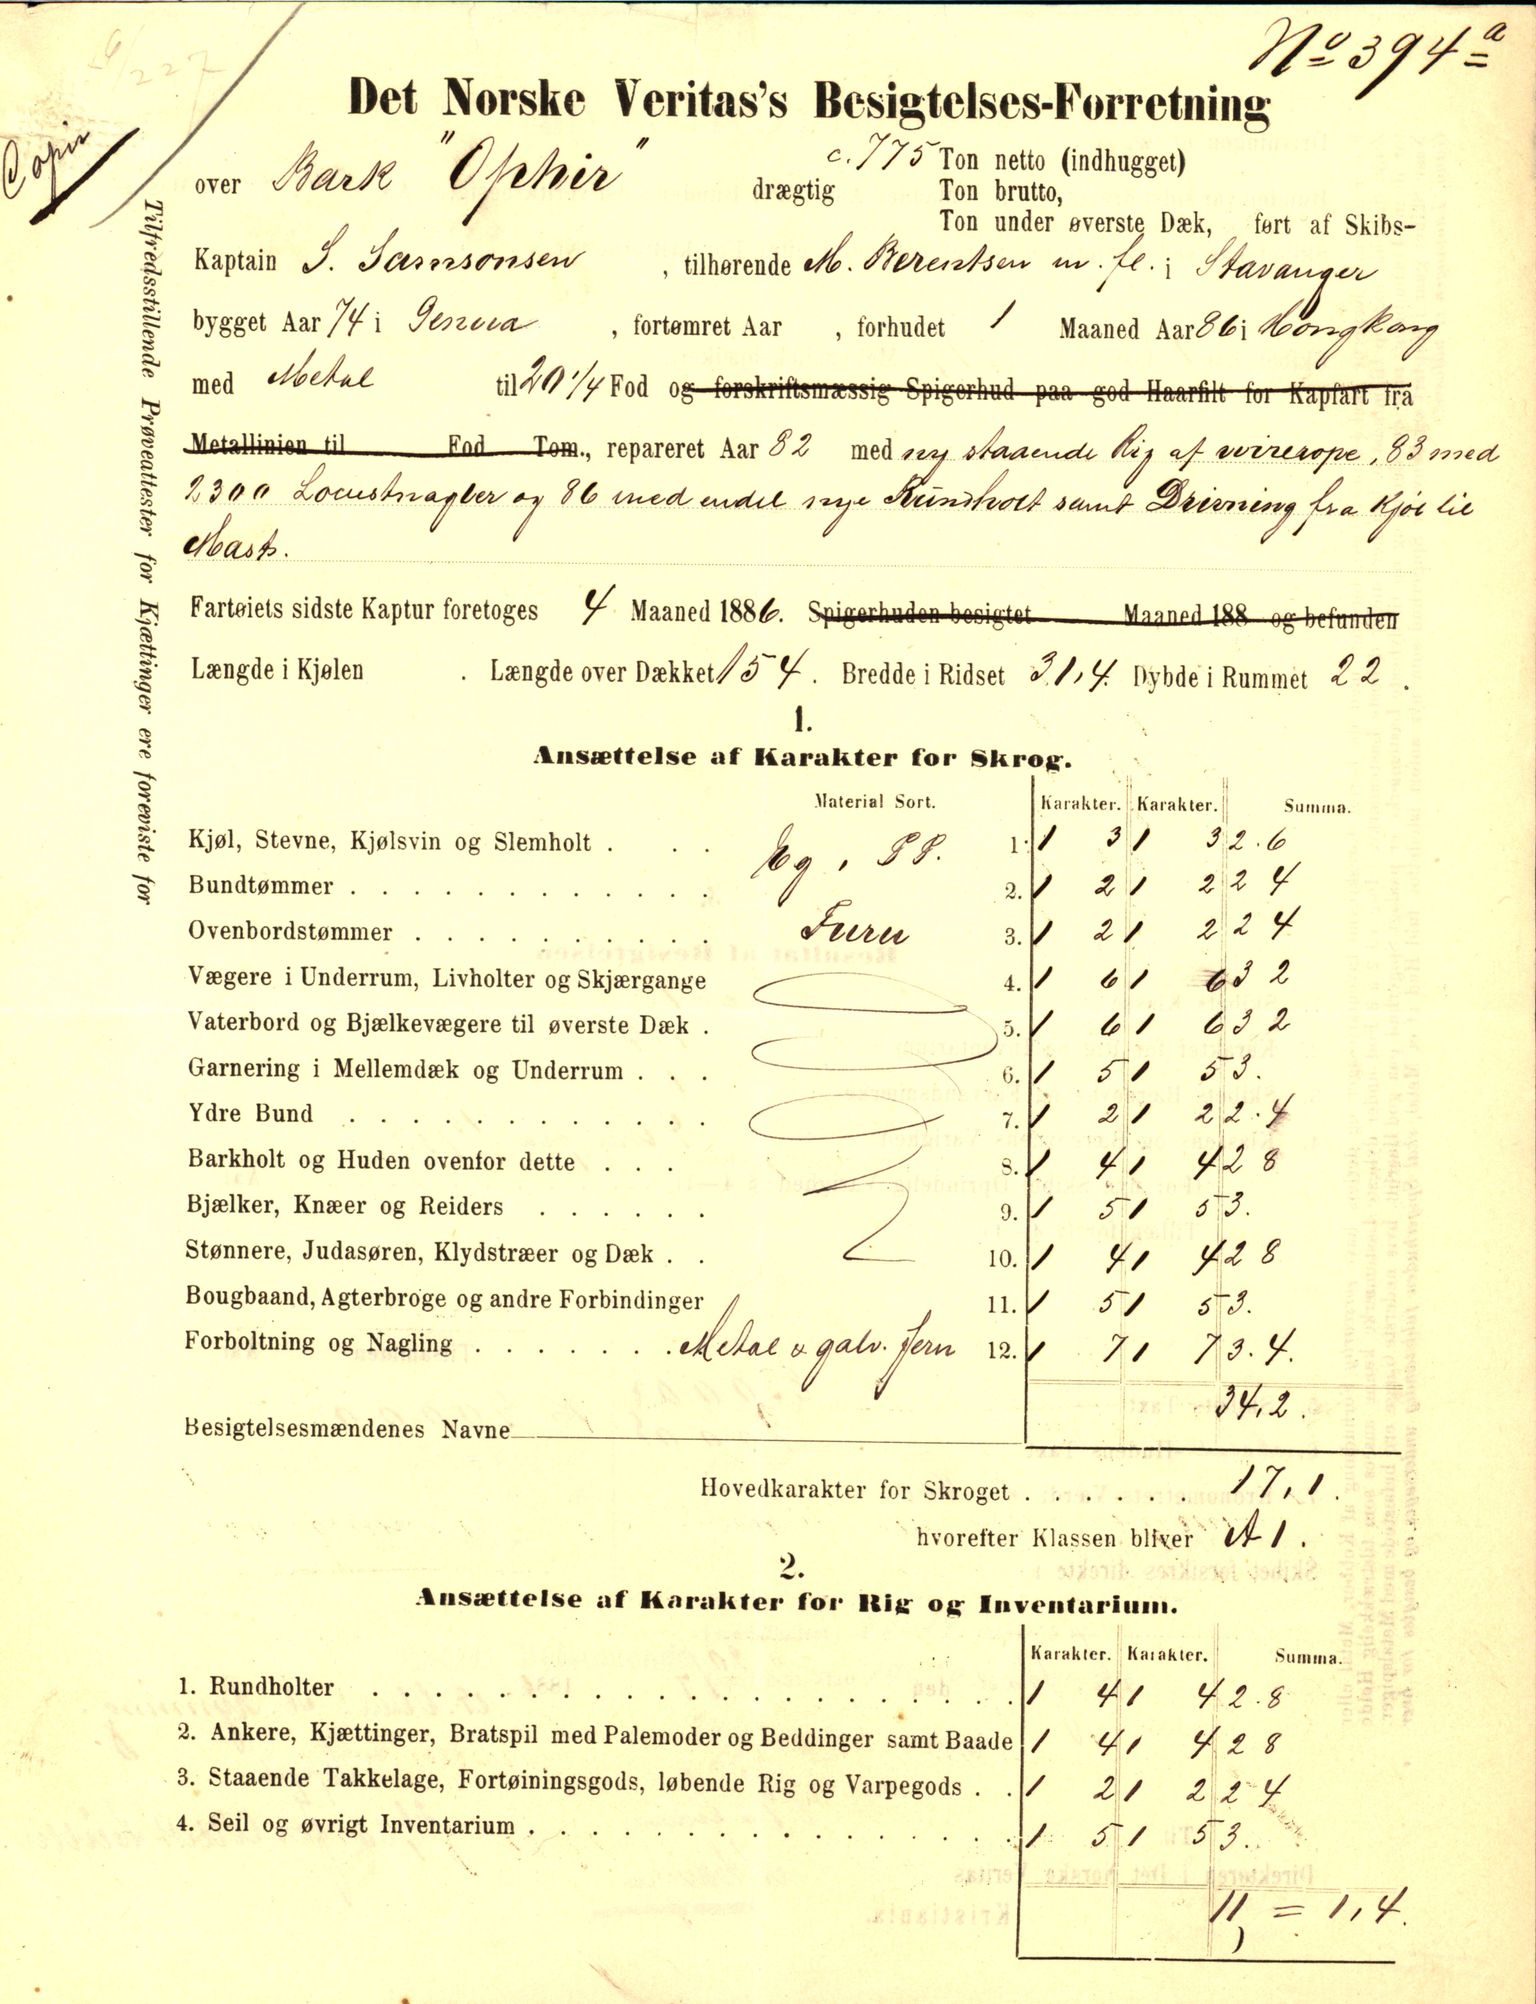 No 394 a
6/227
Copir
Det Norske Veritas's Besigtelses-Forretning
over Bark "Ophir" drægtig c. 775 Ton netto (indhugget)
Ton brutto,
Ton under øverste Dæk, ført af Skibs-
Kaptain S. Samsonsen, tilhørende M. Berentsen m. fl. i Stavanger
bygget Aar 74 i Genua, fortømret Aar , forhudet 1 Maaned Aar 86 i Hongkong
med Metal til 20 1/4 Fod og forskriftsmæssig Spigerhud paa god Haarfilt for Kapfart fra
Metallinien til Fod Tom., repareret Aar 82 med ny staaende Rig af wirerope, 83 med
2300 Locustnagler og 86 med endel nye Rundholt samt Drivning fra Kjøl til
Mast.
Fartøiets sidste Kaptur foretoges 4 Maaned 1886. Spigerhuden besigtet Maaned 188 og befunden
Længde i Kjølen . Længde over Dækket 154. Bredde i Ridset 31,4. Dybde i Rummet 22.
Tilfredsstillende Prøveattester for Kjættinger ere foreviste for
1.
Ansættelse af Karakter for Skrog.
Material Sort. Karakter. Karakter. Summa.
Kjøl, Stevne, Kjølsvin og Slemholt . . . Eg, P P. 1. 1 3 1 3 2.6
Bundtømmer . . . . . . . . . . . . 2. 1 2 1 2 2 4
Ovenbordstømmer . . . . . . . . . . Furu 3. 1 2 1 2 2 4
Vægere i Underrum, Livholter og Skjærgange 4. 1 6 1 6 3 2
Vaterbord og Bjælkevægere til øverste Dæk . 5. 1 6 1 6 3 2
Garnering i Mellemdæk og Underrum . . . 6. 1 5 1 5 3.
Ydre Bund . . . . . . . . . . . . 7. 1 2 1 2 2.4
Barkholt og Huden ovenfor dette . . . 8. 1 4 1 4 2 8
Bjælker, Knæer og Reiders . . . . . . 9. 1 5 1 5 3.
Stønnere, Judasøren, Klydstræer og Dæk . . 10. 1 4 1 4 2 8
Bougbaand, Agterbroge og andre Forbindinger 11. 1 5 1 5 3.
Forboltning og Nagling . . . . . . . Metal & galv. Jern 12. 1 7 1 7 3.4.
34,2.
Besigtelsesmændenes Navne
Hovedkarakter for Skroget . . . . . . 17,1.
hvorefter Klassen bliver A1.
2.
Ansættelse af Karakter for Rig og Inventarium.
Karakter. Karakter. Summa.
1. Rundholter . . . . . . . . . . . . . . . . . . 1 4 1 4 2.8
2. Ankere, Kjættinger, Bratspil med Palemoder og Beddinger samt Baade 1 4 1 4 2 8
3. Staaende Takkelage, Fortøiningsgods, løbende Rig og Varpegods . . 1 2 1 2 2 4
4. Seil og øvrigt Inventarium . . . . . . . . . . . . . . . 1 5 1 5 3.
11 = 1,4.